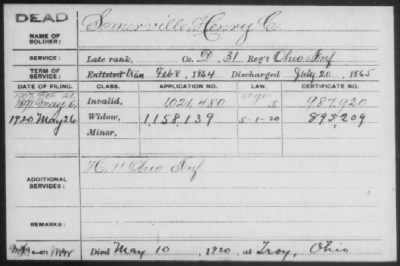 DEAD
NAME OF SOLDIER: Somerville, Henry C.
SERVICE: Late rank, Co. D, 31, Reg't Ohio Inf
TERM OF SERVICE: Enlisted Feb 8, 1864 Discharged July 20, 1865
DATE OF FILING. CLASS. APPLICATION NO. CERTIFICATE NO.
1891 May 6, Invalid, 1021,480 987,920
1920 May 26 Widow, 1,158,139 5-1-20 893,209
Minor,
ADDITIONAL SERVICES: H. 11 Ohio Inf
REMARKS:
Died May 10, 1920, at Troy, Ohio